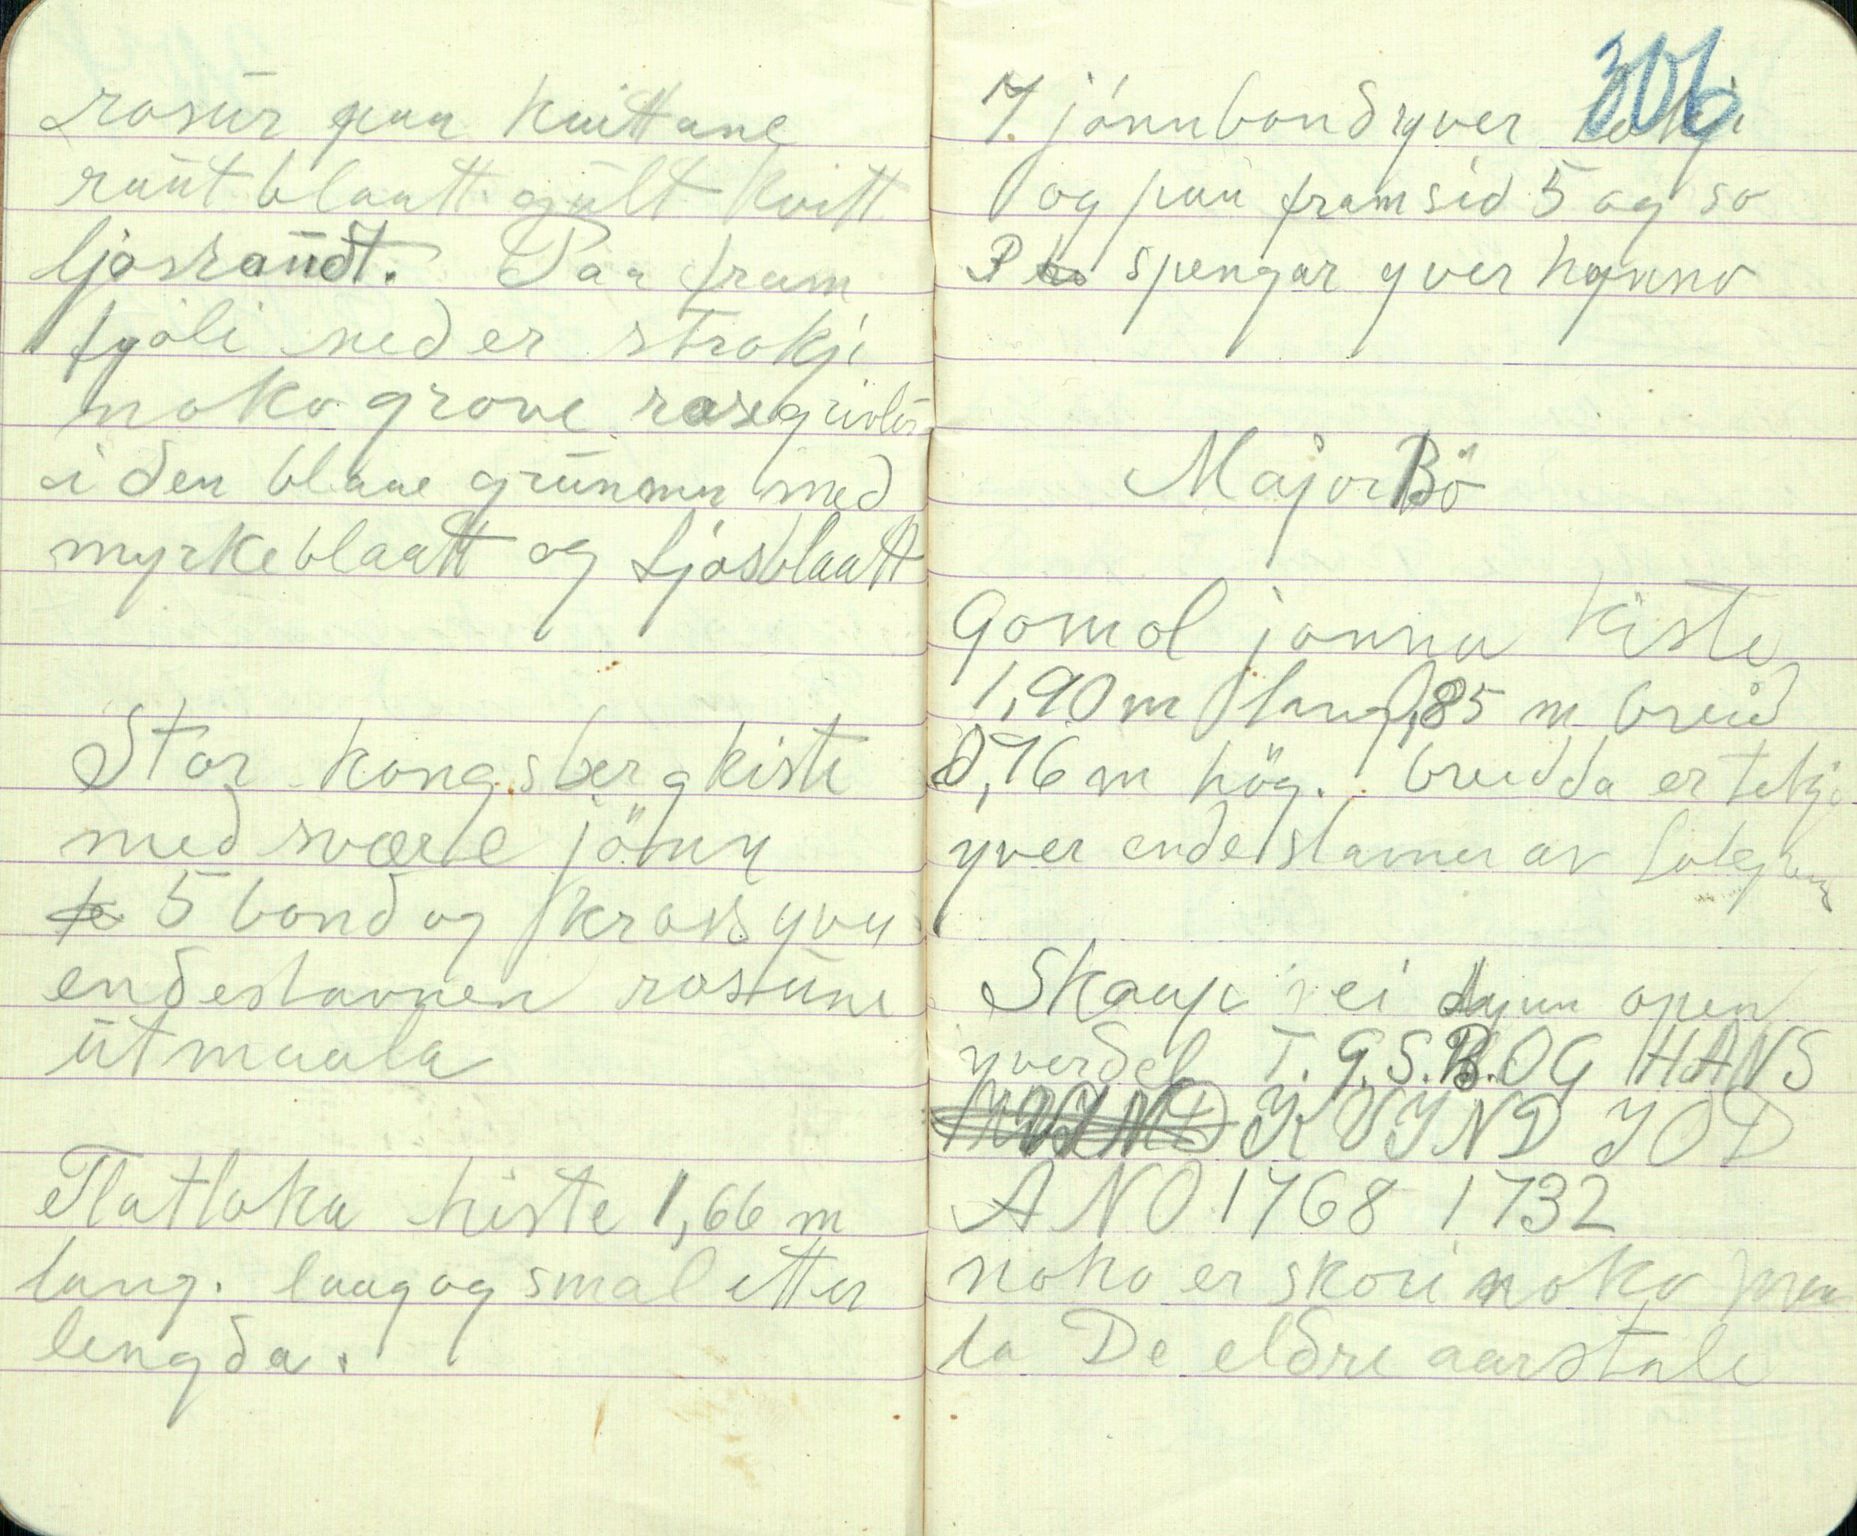 rosur paa kvittane
raüt blaatt gült kvitt
ljosraüdt. Paa fram
fjöli ned er strokji
noko grove
i den blaae grünnen med
myrkeblaatt og ljosblaatt
Stor kongsbergkiste
med svære jönn
5 bond og kross yver
endestavnen rosüne
ütmaala
Flatloka kiste 1,66 m
lang. laag og smal etter
lengda.
306
7 jónnbond yver lokji
og paa framsid 5 og so
spengar yver hynno
Major Bö
Gomol jonna kiste
1,90 m lang 0,85 m breid
0,76 m hög. breidda er tekji
yver endestavnen av
Skaap ei dynn open
yverdel T.G.S.B.OG HANS
KVIND IOD
ANO 1768 1732
noko er skori noko maa
la De eldre aarstale